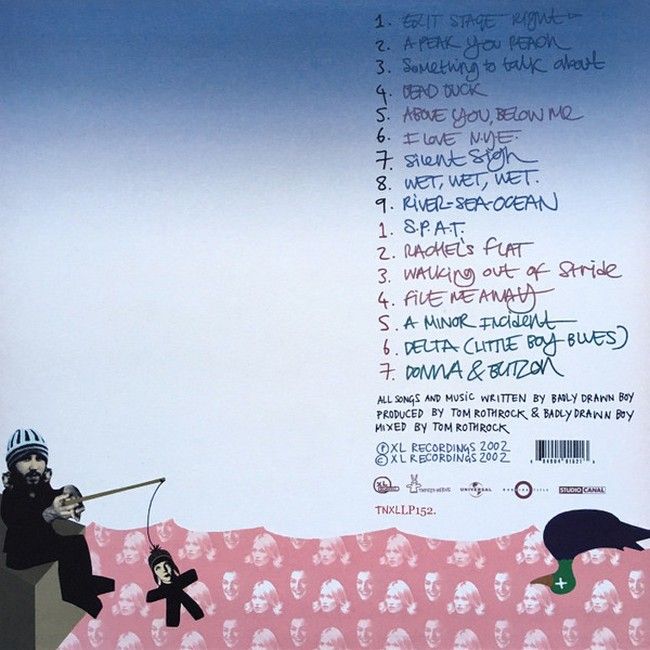 1. EXIT STAGE RIGHT
2. A PEAK YOU REACH
3. Something to talk about
4. DEAD DUCK
5. ABOVE YOU, BELOW ME
6. I LOVE N.Y.E.
7. Silent Sigh
8. WET, WET, WET.
9. RIVER-SEA-OCEAN
1. S.P.A.T.
2. RACHEL'S FLAT
3. WALKING OUT OF STRIDE
4. FILE ME AWAY
5. A MINOR INCIDENT
6. DELTA (LITTLE BOY BLUES)
7. DONNA & BLITZEN
ALL SONGS AND MUSIC WRITTEN BY BADLY DRAWN BOY
PRODUCED BY TOM ROTHROCK & BADLY DRAWN BOY
MIXED BY TOM ROTHROCK
Ⓟ XL RECORDINGS 2002
© XL RECORDINGS 2002
XL TWISTED NERVE UNIVERSAL WORKING TITLE STUDIO CANAL
TNXLLP152.